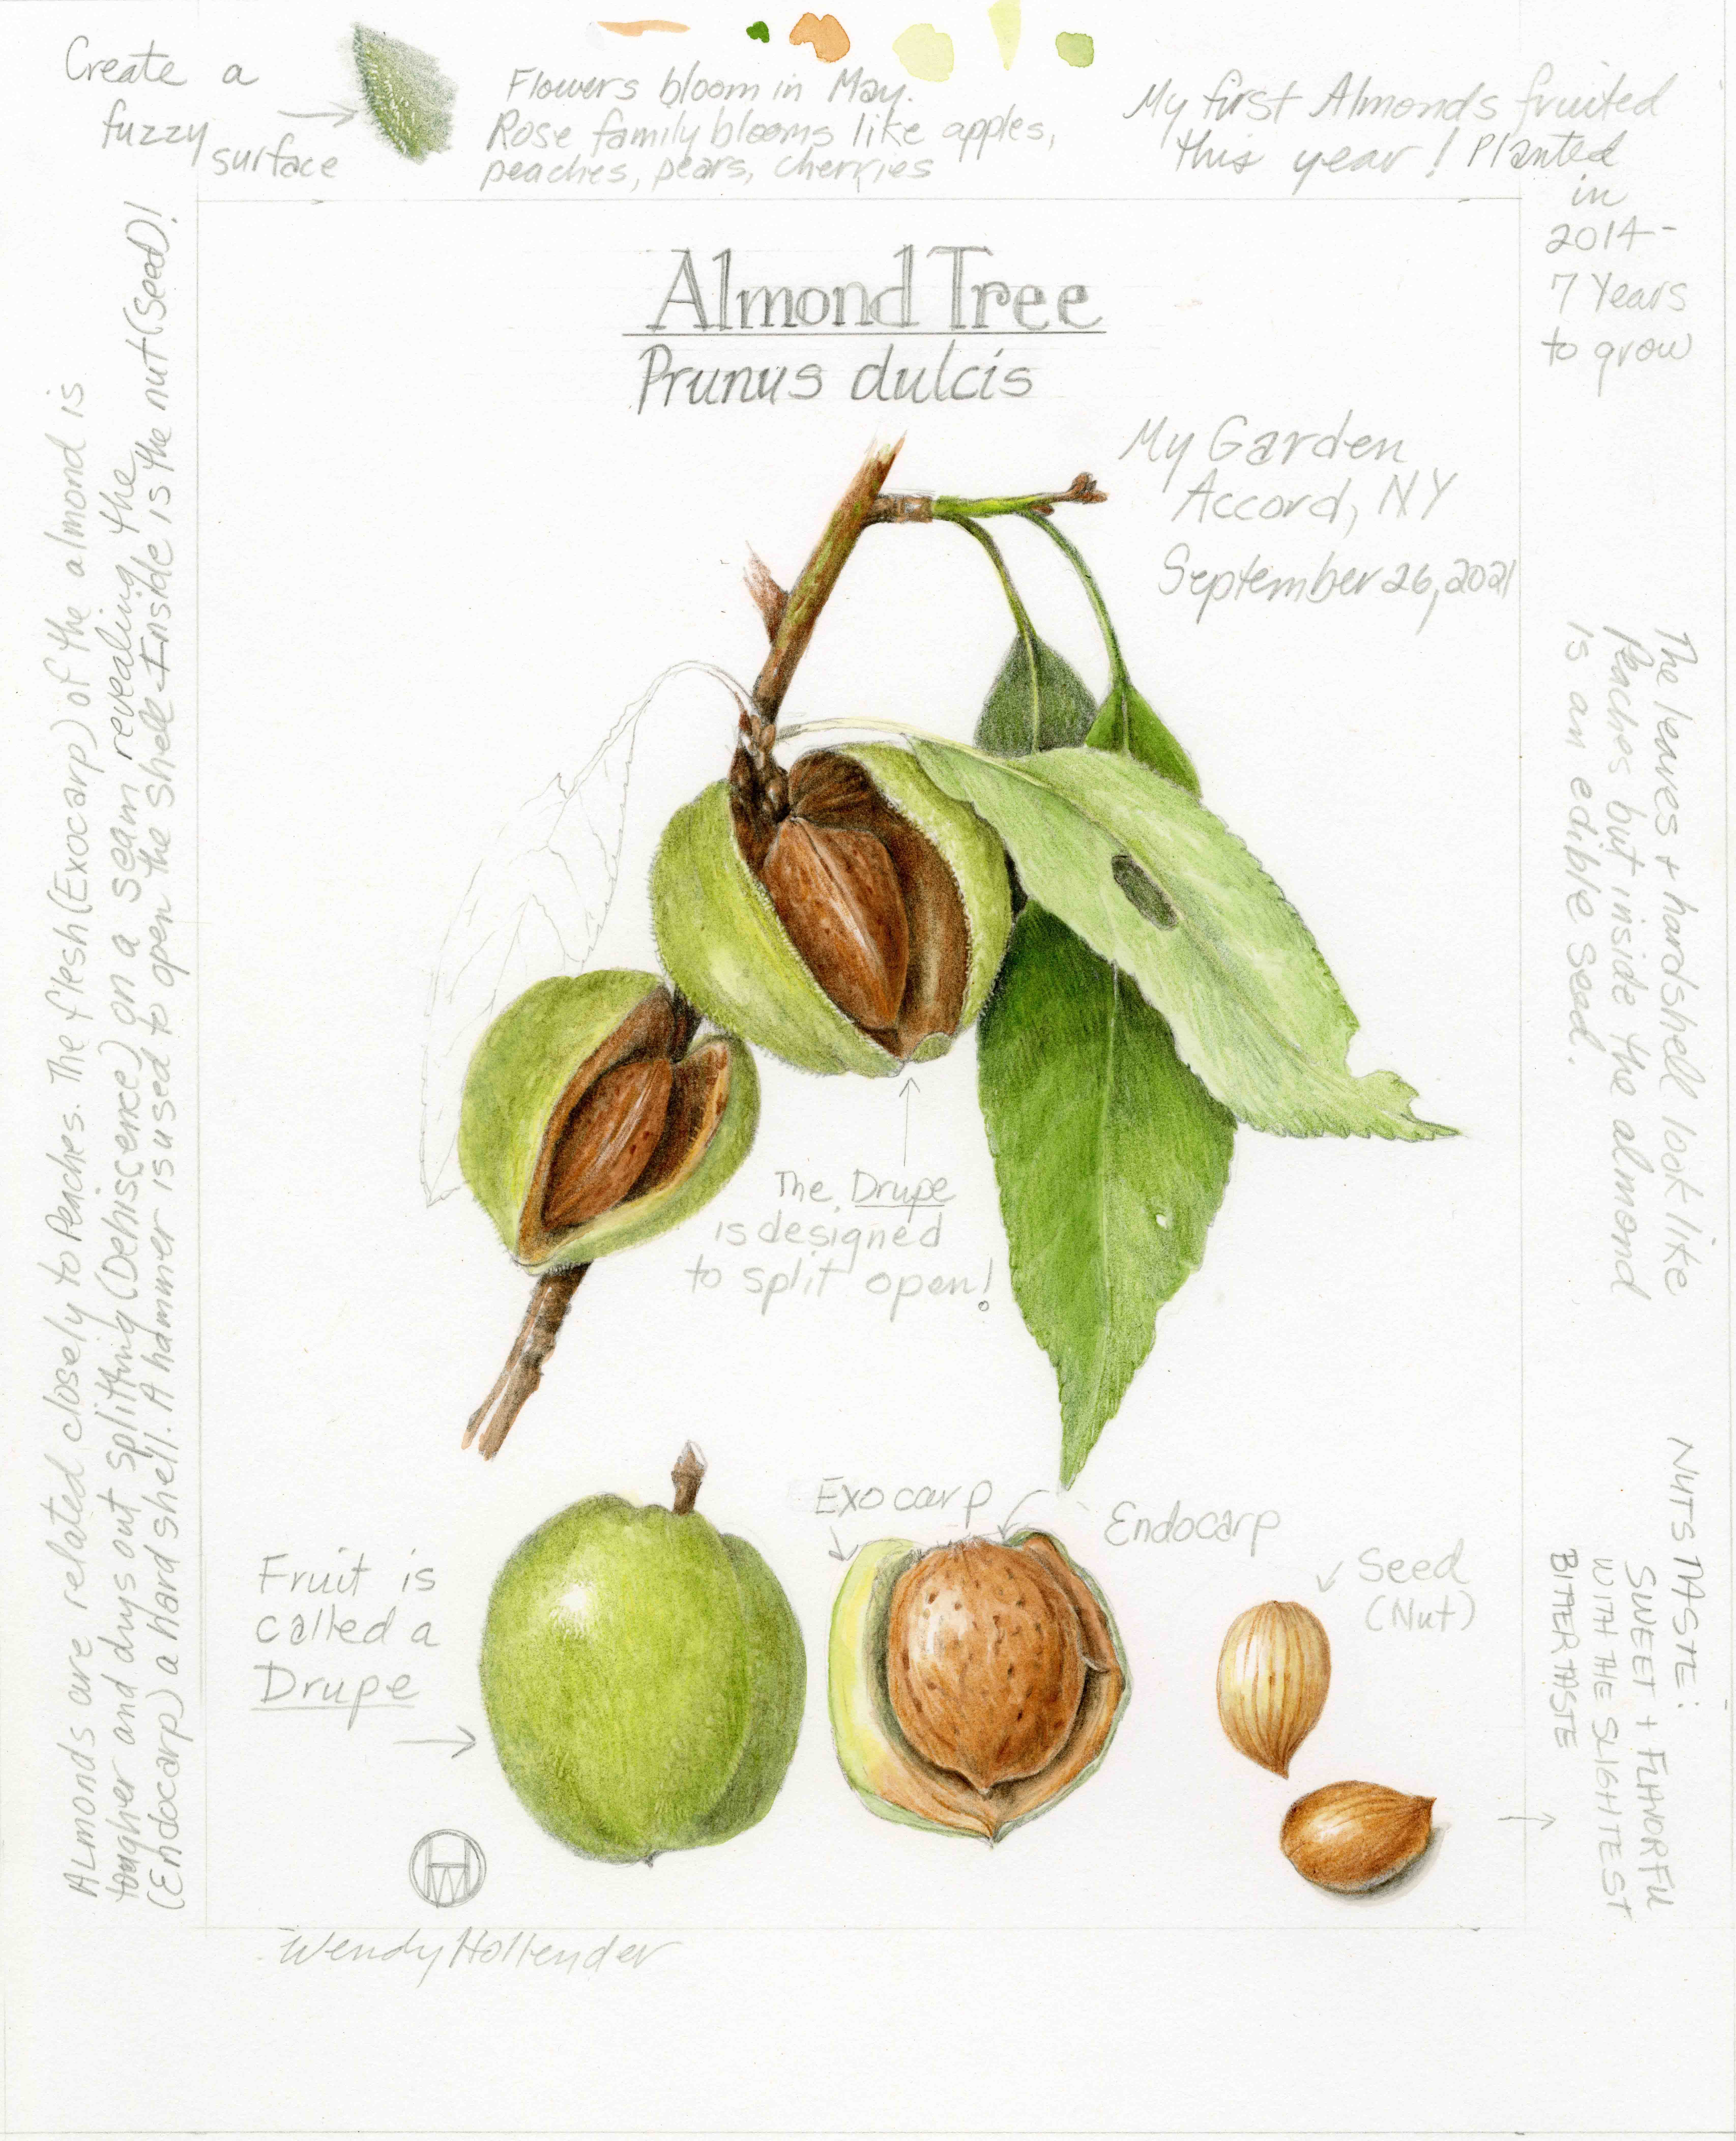 Create a
fuzzy
surface
Flowers bloom in May.
Rose family blooms like apples,
peaches, pears, cherries
My first Almonds fruited
this year! Planted
in
2014-
7 Years
to grow
Almond Tree
Prunus dulcis
My Garden
Accord, NY
September 26, 2021
Almonds are related closely to Peaches. The flesh (Exocarp) of the almond is
tougher and drys out splitting (Dehiscence) on a seam revealing the
(Endocarp) a Hard shell. A hammer is used to open the shell-Inside is the nut (seed)!
The leaves + hardshell look like
Peaches but inside the almond
is an edible seed.
The Drupe
is designed
to split open!
Fruit is
called a
Drupe
Exocarp
Endocarp
Seed
(Nut)
NUTS TASTE:
SWEET + FLAVORFUL
WITH THE SLIGHTEST
BITTER TASTE
Wendy Hollender